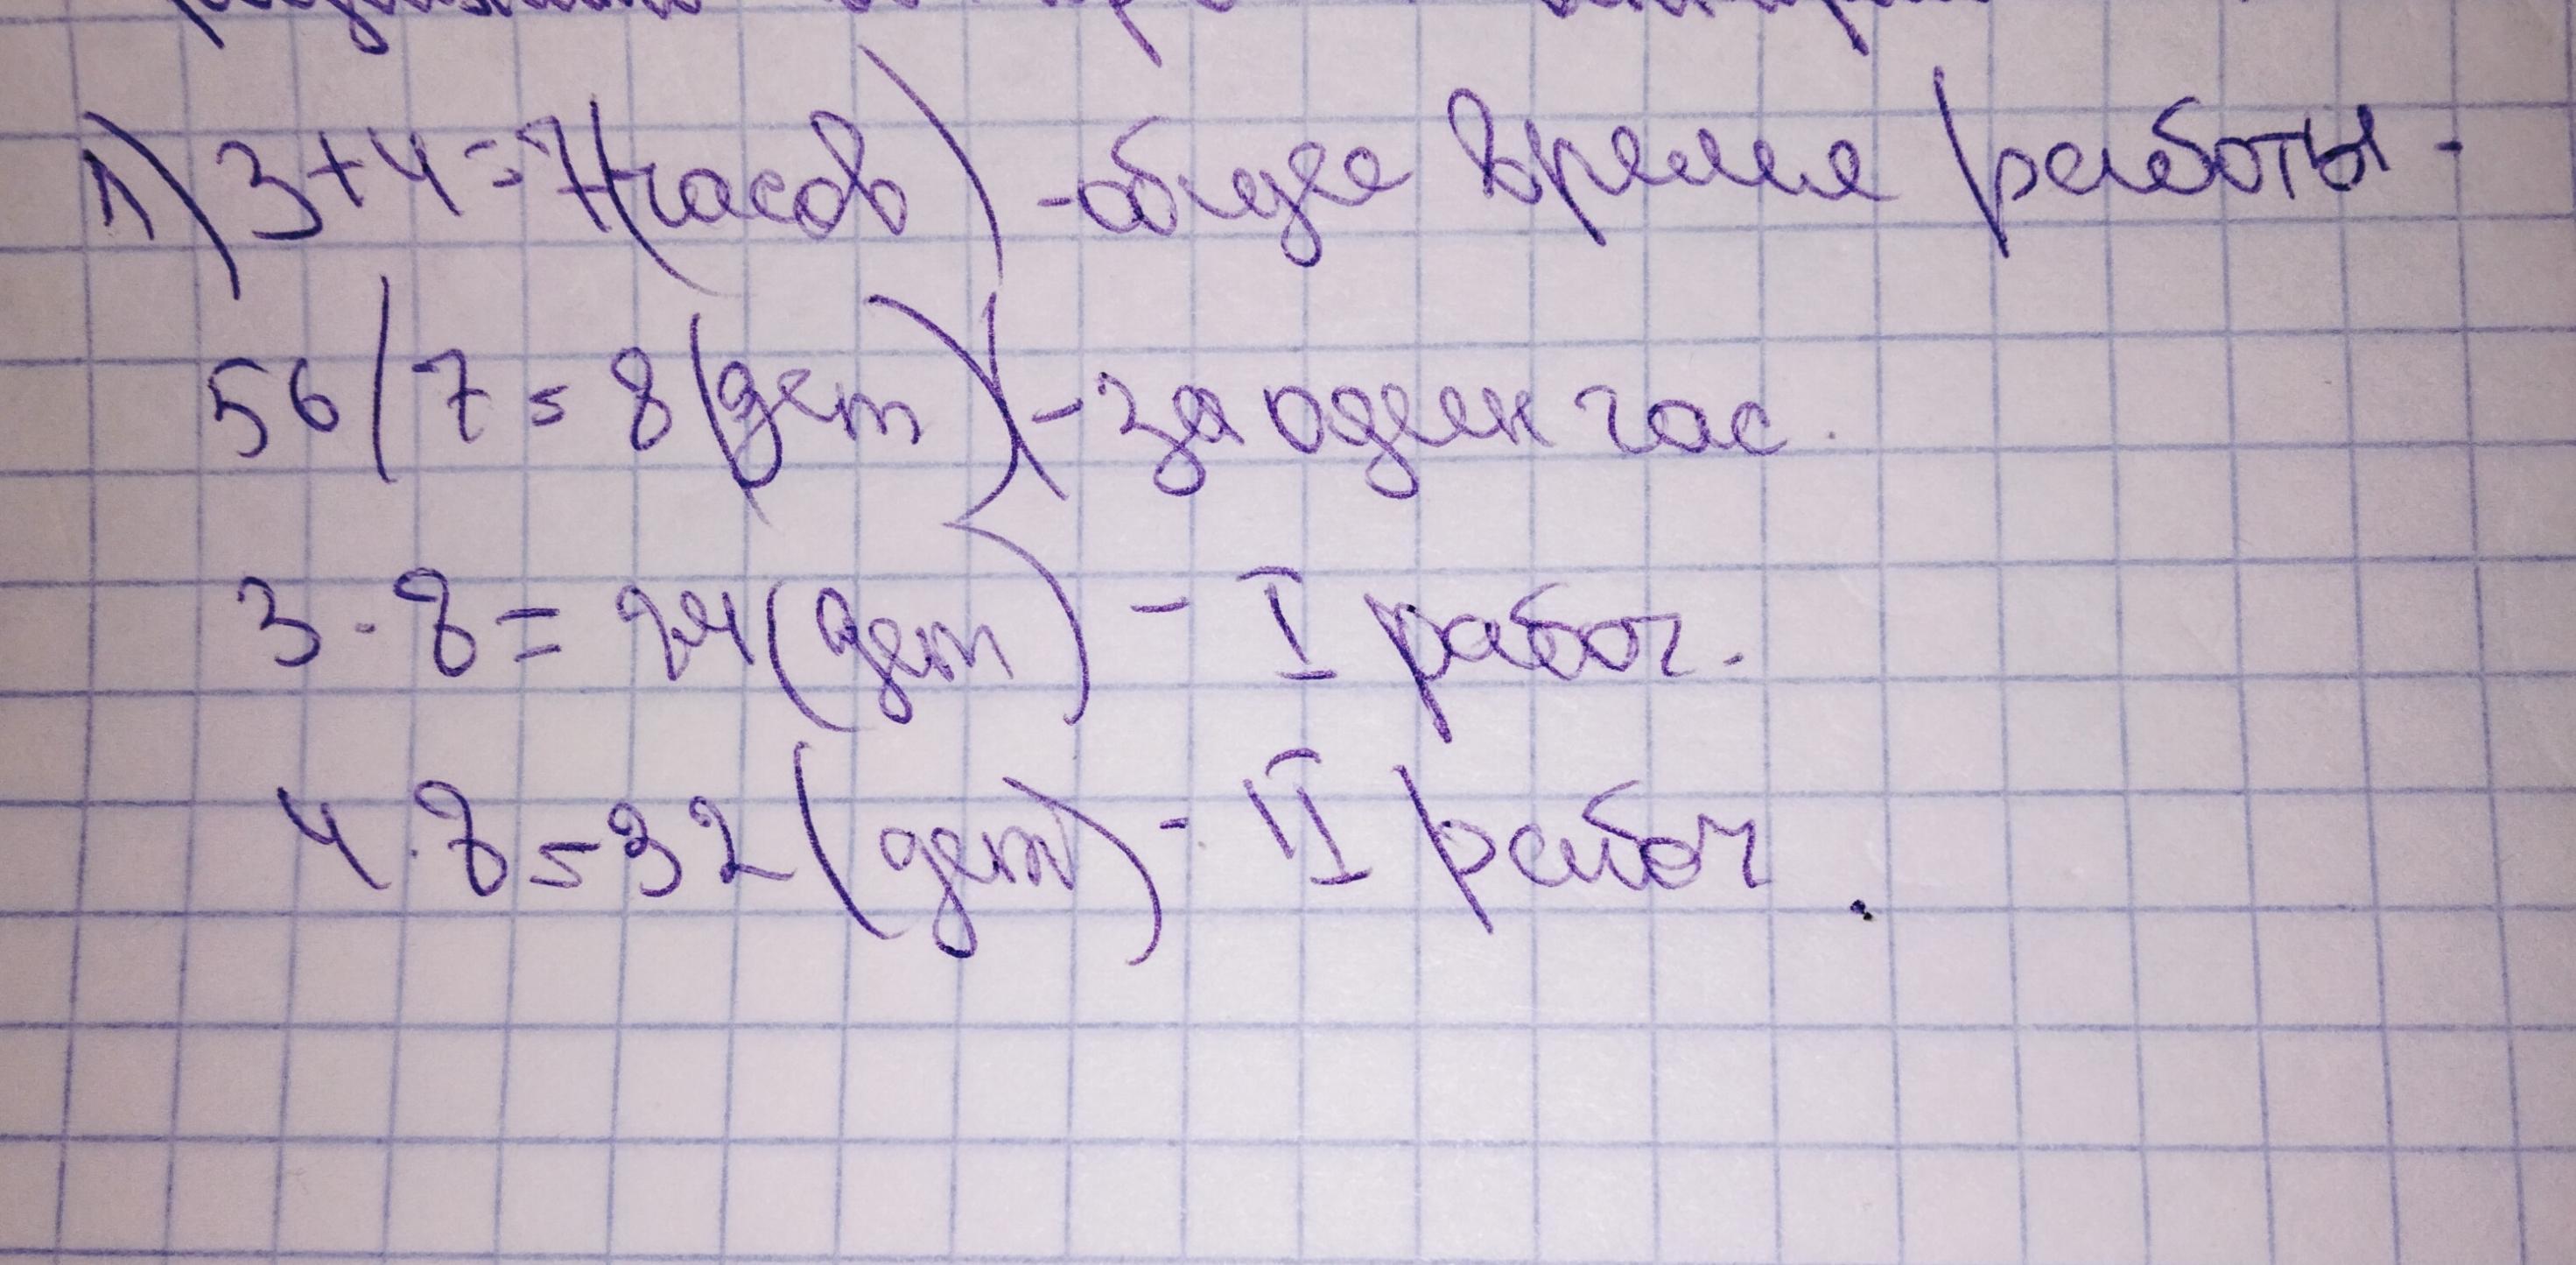 1) 3+4=7(часов) - общее время работы.
56/7=8(дет) - за один час.
3·8=24(дет) - I рабоч.
4·8=32(дет) - II рабоч.